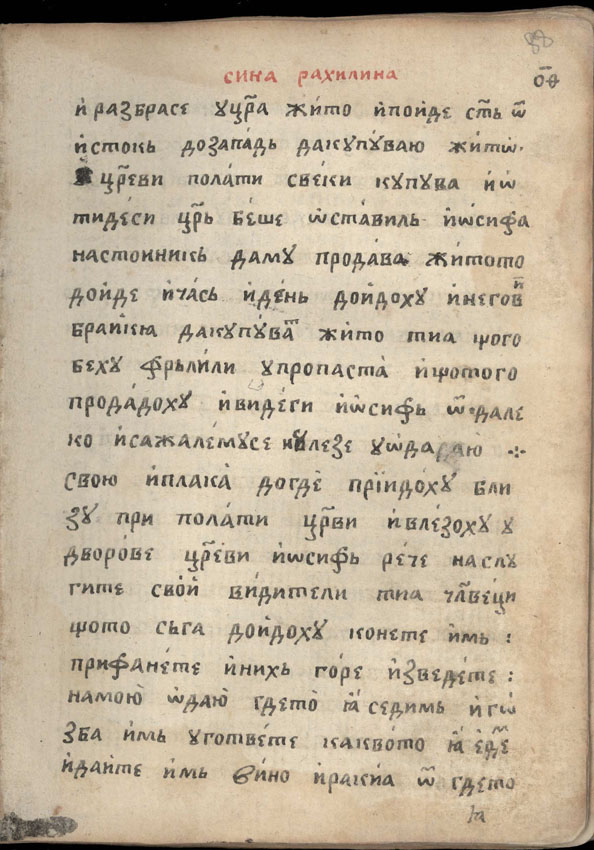 88
сина рахилина
ѻ҃ѳ
и҆ разбрасе ꙋцр҃а жи́то и҆пои́де ст҃ь ѿ
и҆стокь дозапа́дь дакꙋпꙋ́ваю жи́тѡ·
цр҃еви пола́ти све́ки кꙋпꙋва и҆ѡ
тиде́си цр҃ь бе́ше ѡ҆ста́виль и҆ѡ́сифа
настоиникь да́мꙋ прода́ва жи́тото
до́иде и҆ча́сь и҆де́нь дои́дохꙋ и҆негов
браи҆кꙗ дакꙋпꙋ́ват жи́то тиа щого
бехꙋ фрьли́ли ꙋпропаста̀ и҆щотого
прода́дохꙋ и҆ви́деги и҆ѡ́сифь ѿдале
ко и҆сажале́мꙋсе и҆ꙋлезе ꙋѡ҆даꙗю ⁘
свою и҆плака̀ догдѐ прїи́дохꙋ бли
зꙋ при пола́ти цр҃ви и҆вле́зохꙋ ꙋ
дворо́ве цр҃е́ви и҆ѡ́сифь ре́че наслꙋ
гите свои́ ви́дители тиа чл҃ве́ци
щото сьга дои́дохꙋ конете и҆мь :
прифане́те и҆нихь го́ре и҆зведе́те :
намою̀ ѡ҆даю̀ где́тѡ̀ ꙗ҆ седимь и҆гѡ
зба и҆мь ꙋготве́те какво́то ꙗ҆ еде́
и҆да́ите и҆мь ви́но и҆раки́а ѿ где́то
ꙗ